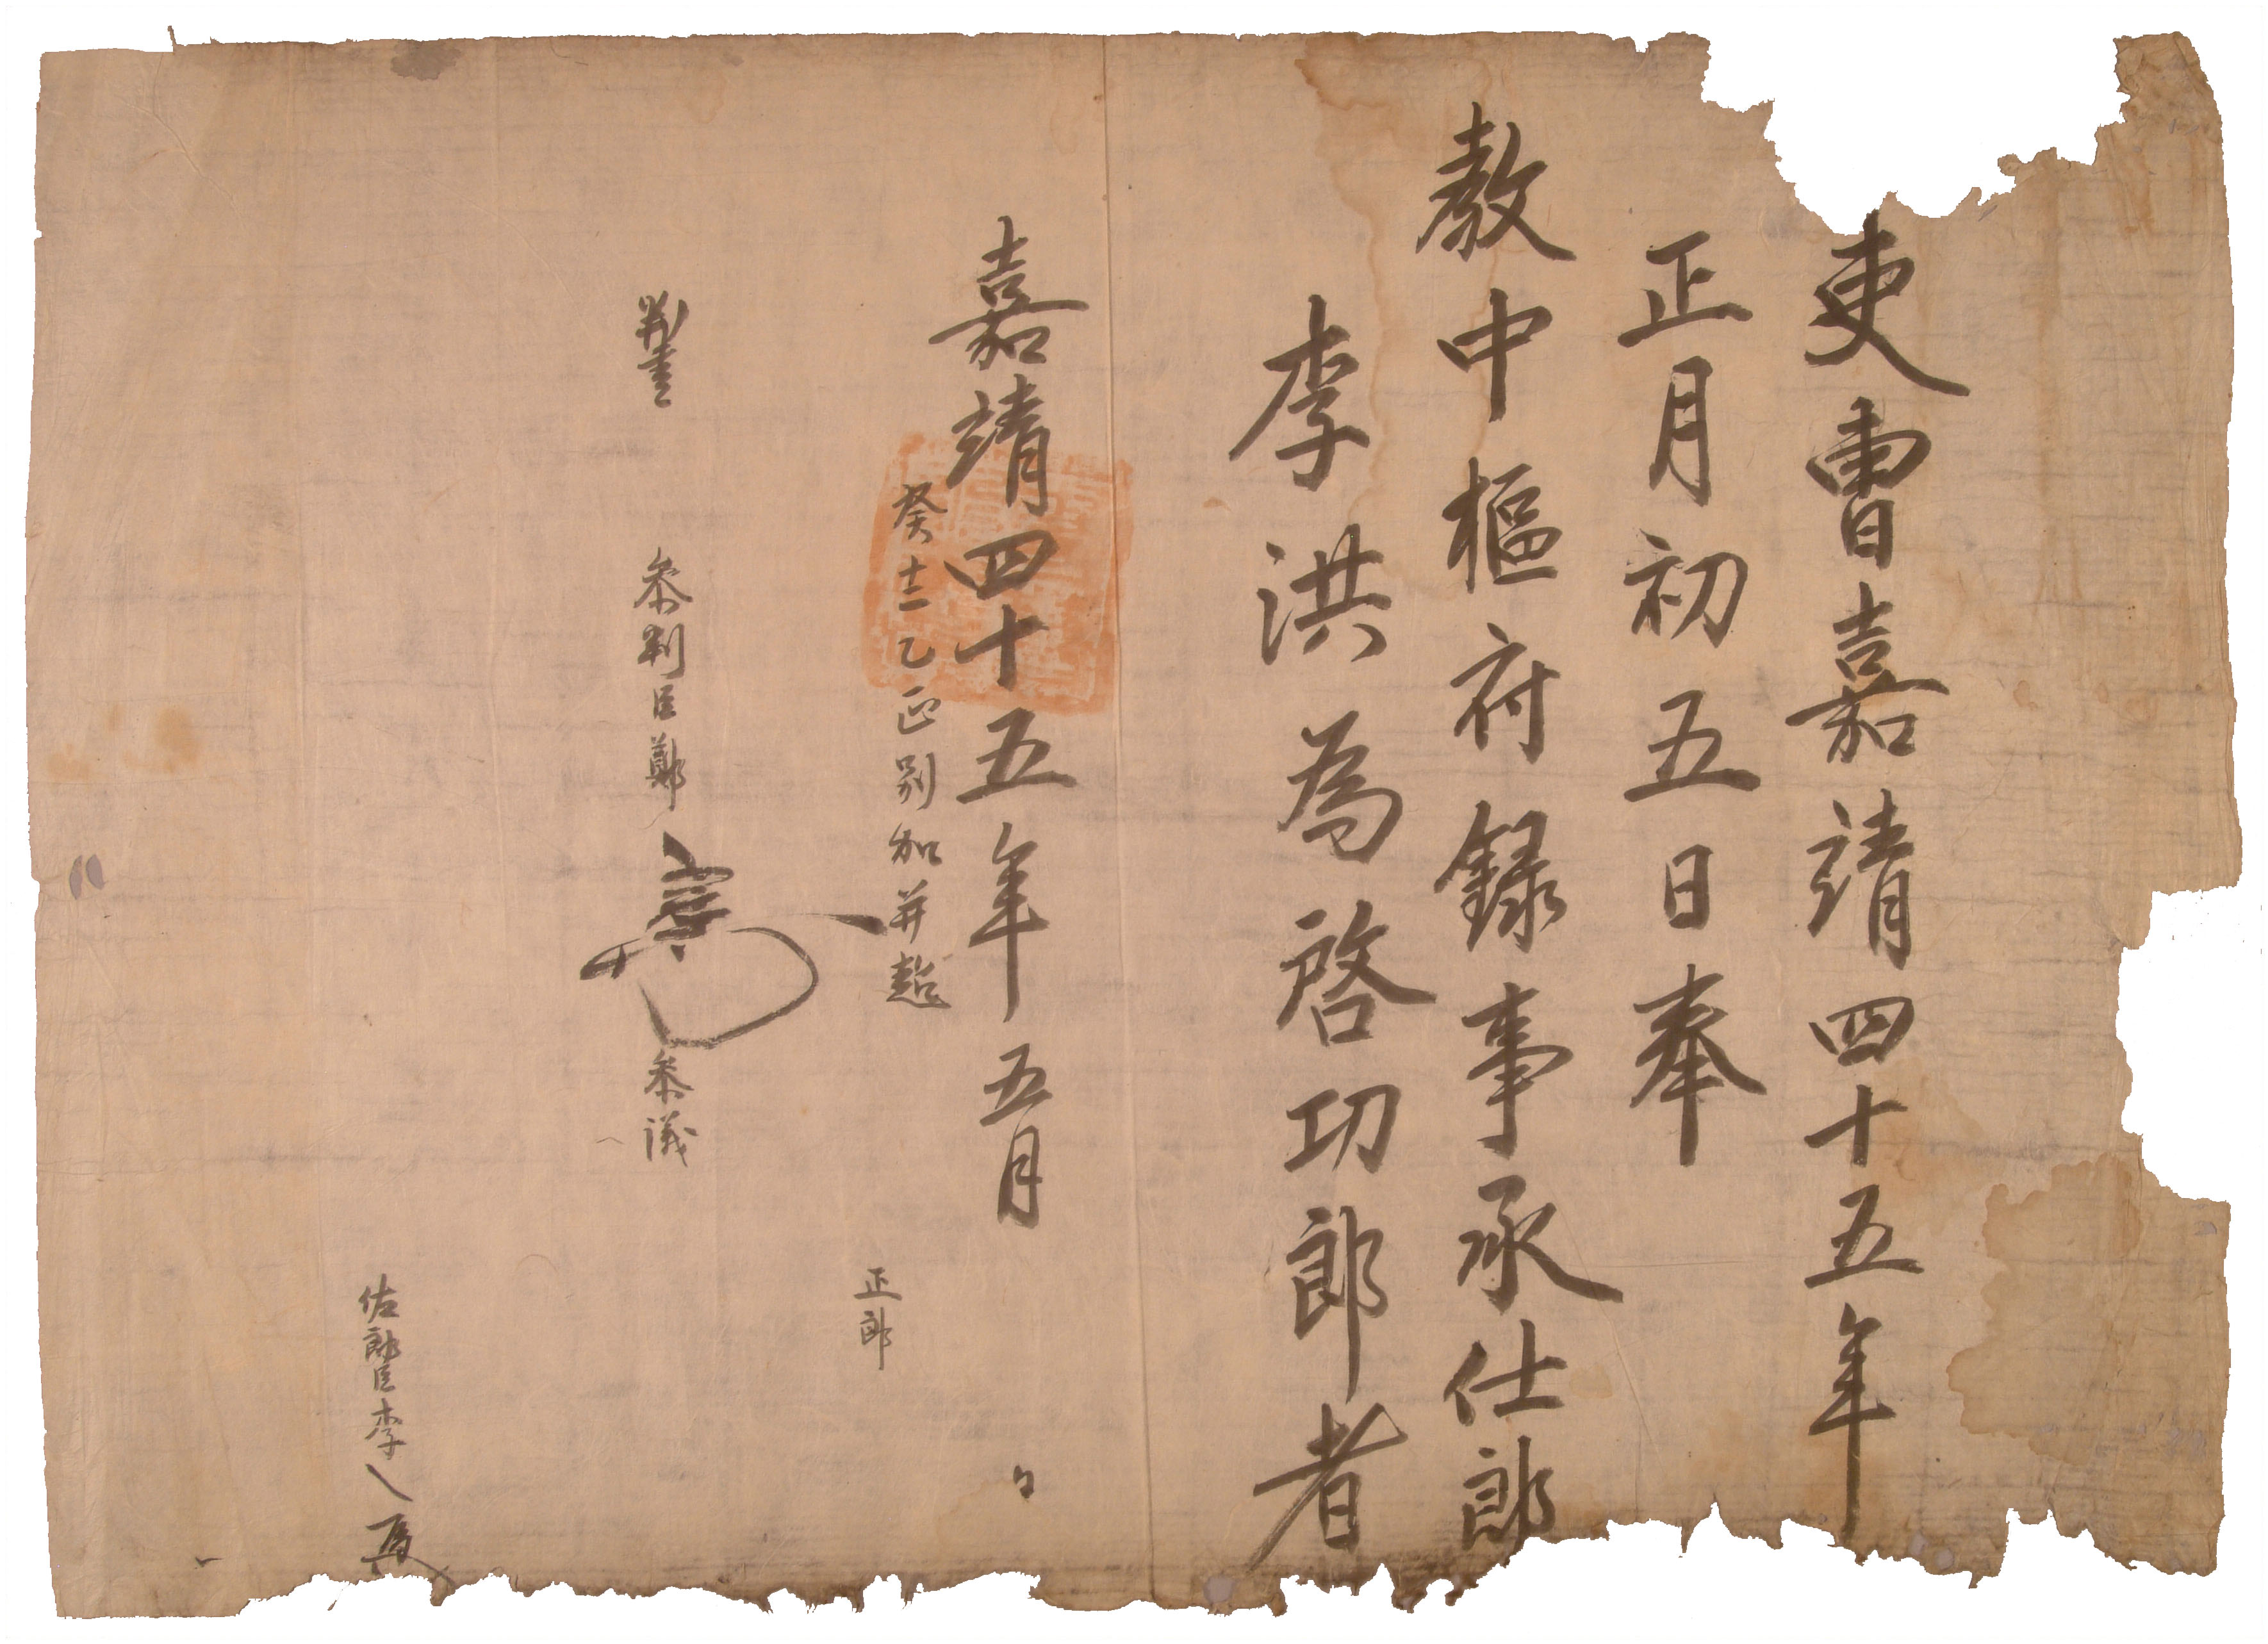 吏曹嘉靖四十五年
正月初五日奉
教中樞府錄事承仕郎
李洪為啓功郎者
嘉靖四十五年五月 日
癸十二乙正別加并超
正郎
判書 参判臣鄭 参議
佐郎臣李